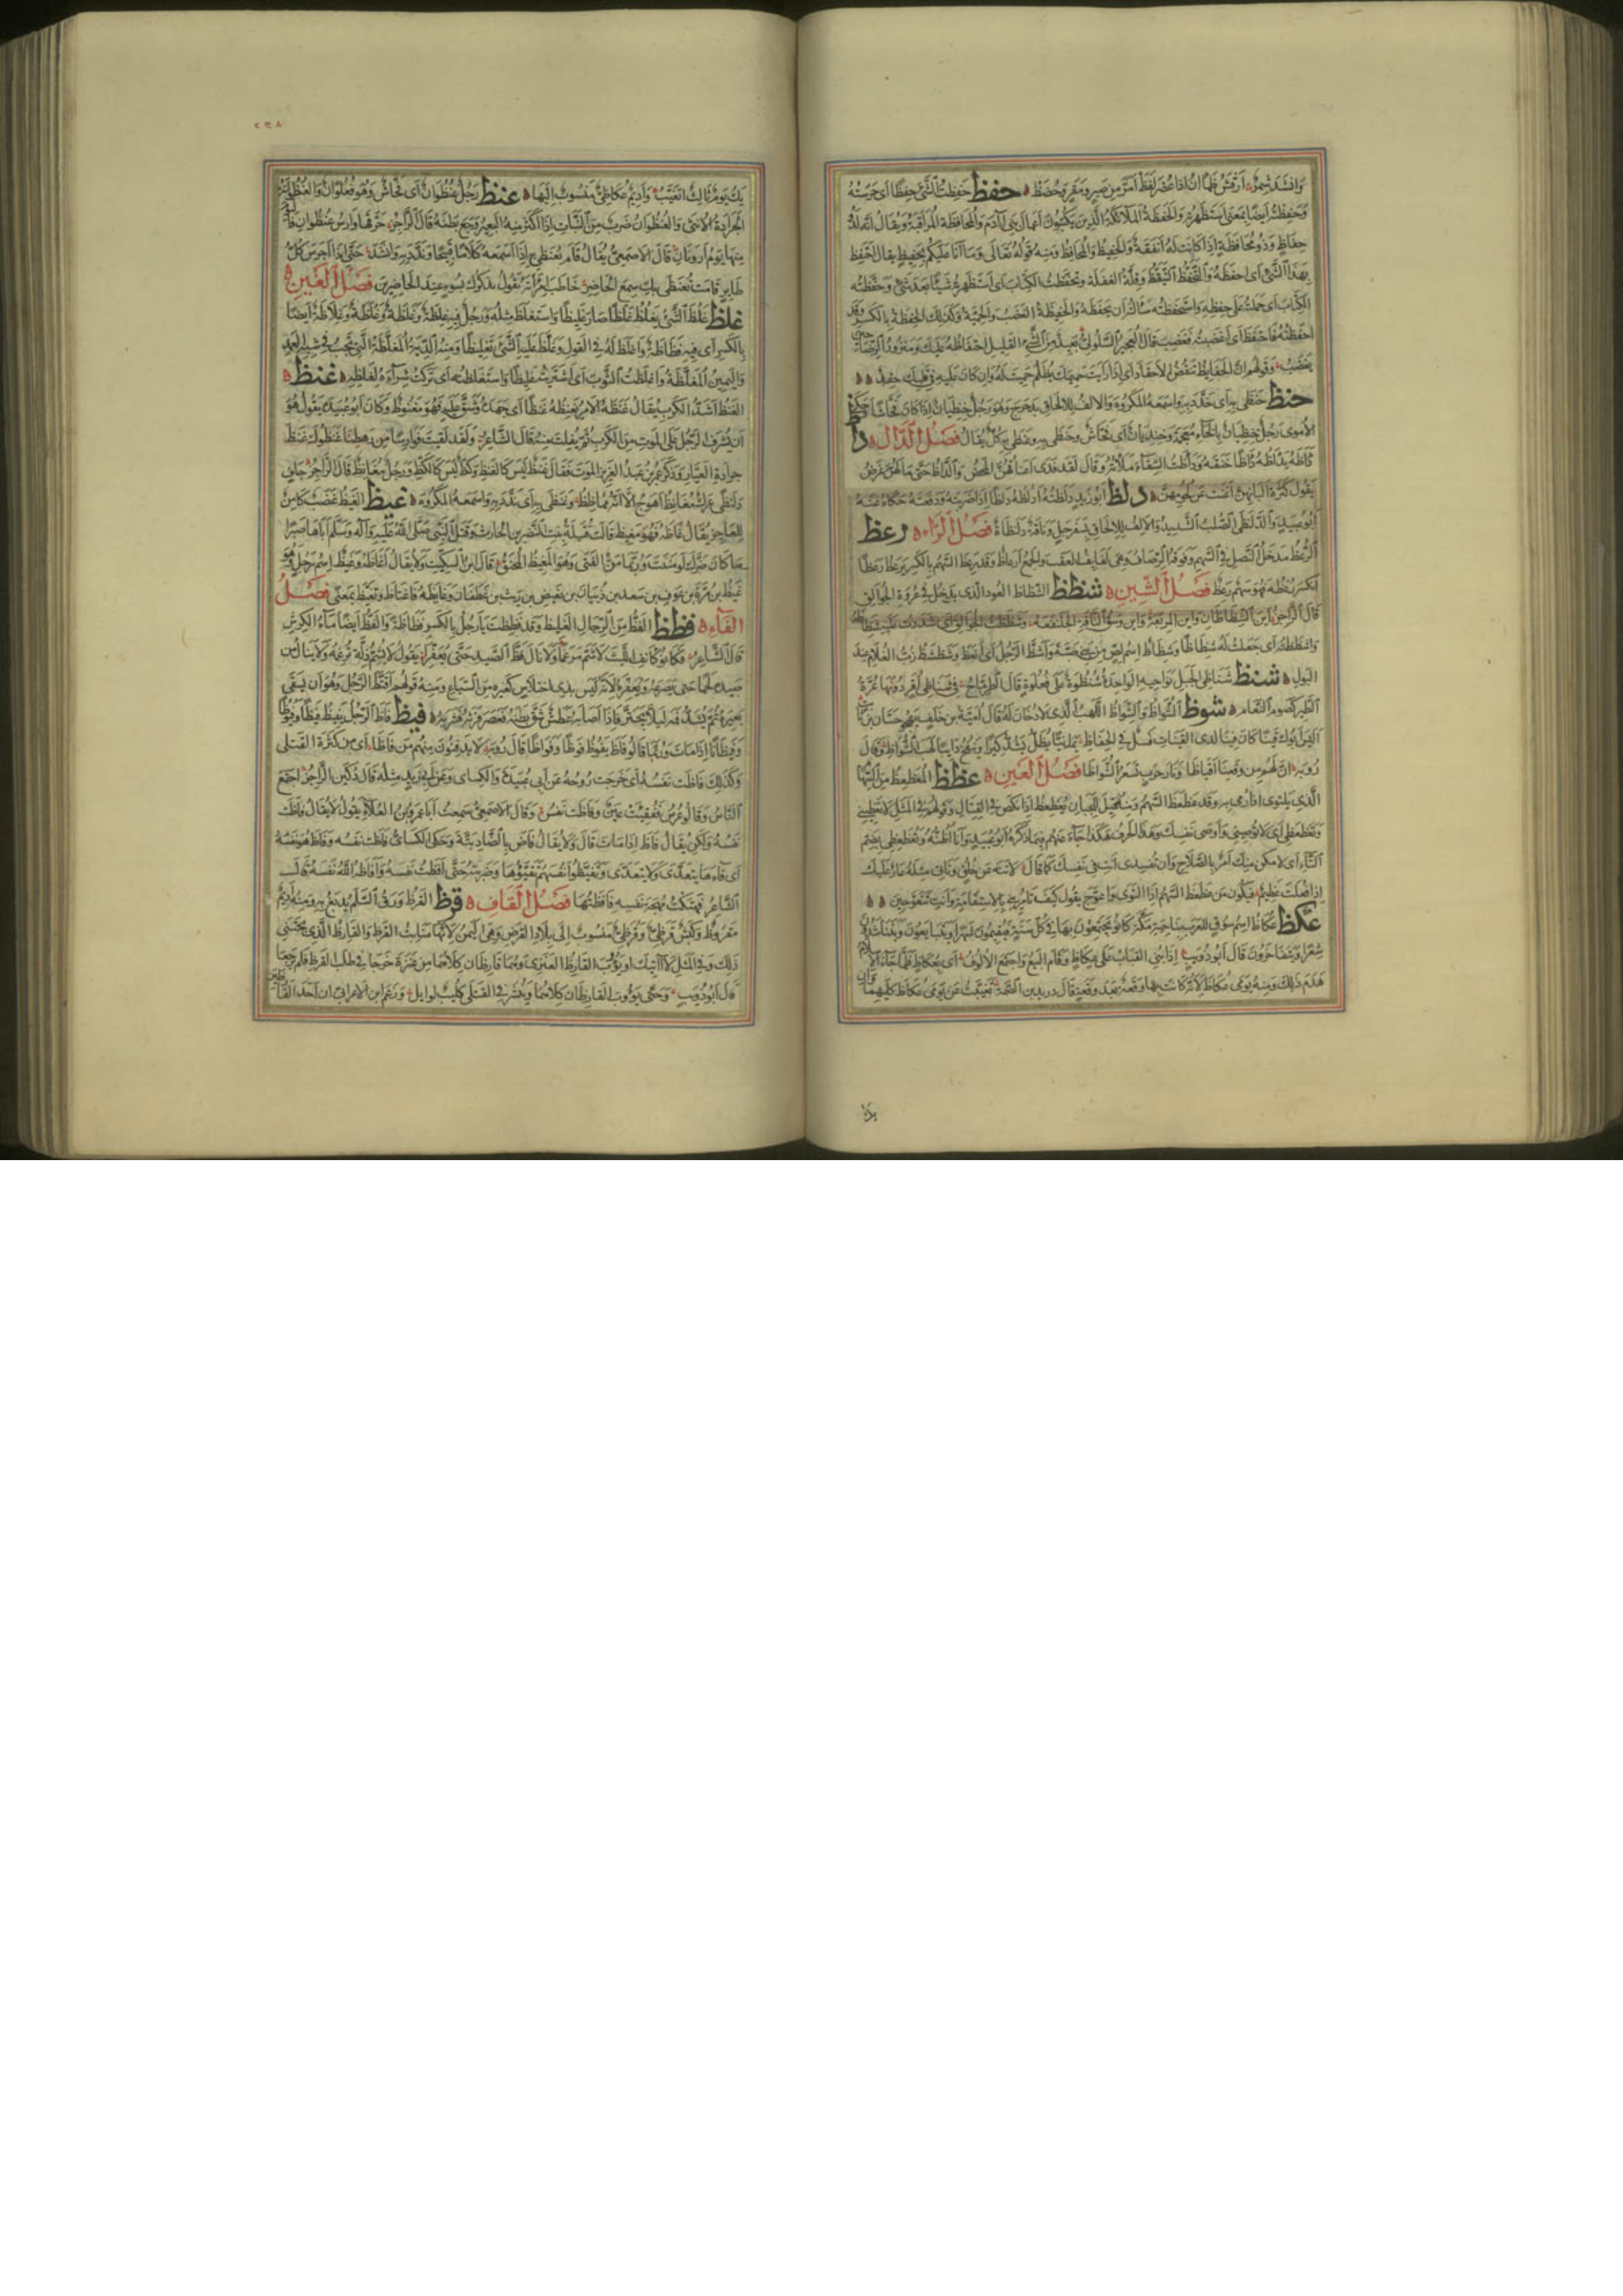 وانشد شمر ارقش ظمان اذا عصر لفظ امر من صبر ومقر وحضظ حفظ حفظت الشئ حفظا اى حرسته
وحفظته ايضا بمعنى استظهرته والحفظة الملائكة الذين يكتبون اعمال بنى آدم والمحافظة المراقبة ويقال انه لذو
حفاظ وذو محافظة اذا كانت له انفة والحفيظ والمحافظ ومنه قوله تعالى وما انا عليكم بحفيظ يقال احتفظ
بهذا الشئ اى احفظه والتحفظ التيقظ وقلة الغفلة وتحفظت الكتاب اى استظهرته شيئا بعد شئ وحفظته
الكتاب اى حملته على حفظه واستحفظته سألته ان يحفظه والحفيظة الغضب والحمية وكذلك الحفظة بالكسر وقد
احفظته فاحتفظ اى اغضبته فغضب قال العجير السلولى بعيد من الشئ القليل احتفاظه عليك ومنزور الرضا حين
يغضب وقولهم ان الحفايظ تنقض الاحقاد اى اذا رايت حميمك يظلم حميت له وان كان عليه فى قلبك حقد
حنظ حنظى به اى ندد به واسمعه المكروه والالف للالحاق بدحرج وهو رجل حنظيان اذا كان فحاشا وحكى
الاموى رجل خنظيان بالخاء معجمة وخنذيان اى فحاش وحنظى به وعنظى به كل يقال فصل الدال دأظ
دأظه يدأظه دأظا خنقه ودأظت السقاء ملأته وقال لقد فدى اعناقهن المحض والدأظ حتى ما لهن غرض
يقول كثرة البانهن اغنت عن لحومهن دلظ ابو زيد دلظته ادلظه دلظا اذا ضربته ودفعته حكاه عنه
ابو عبيد والدلنظى الصلب الشديد والالف للالحاق بسفرجل وناقة دلنظاة فصل الراء رعظ
الرعظ مدخل النصل فى السهم وفوقه الرصاف وهى لفايف العقب والجمع ارعاظ وقد رعظ السهم بالكسر يرعظ رعظا
انكسر رعظه فهو سهم رعظ فصل الشين شظظ الشظاظ العود الذى يدخل فى عروة الجوالق
قال الراجز اين الشظاظان واين المربعه واين وسق الناقة الجلنفعه وشظظت الجوالق اى شددت عليه شظاظه
واشظظته اى جعلت له شظاظا وشظاظ اسم لص من بنى ضبة واشظ الرجل اى انعظ وشظشظ زب الغلام عند
البول شنظ شناظى الجبل نواحيه الواحدة شنظوة على فعلوة قال الطرماح فى شناظى اقن دونها عرة
الطير كصوم النعام شوظ الشواظ والشواظ اللهب الذى لا دخان له قال امية بن خلف يهجو حسان بن ثابت
اليس ابوك فينا كان قينا لدى القينات فسلا فى الحفاظ يمانيا يظل يشد كيرا وينفخ دايبا لهب الشواظ وقال
روبة ان لهم من وقعنا اقياظا ونار حرب تسعر الشواظا فصل العين عظظ المعظعظ من السهام
الذى يلتوى اذا رمى به وقد عظعظ السهم ومنه قيل للجبان يعظعظ اذا نكص فى القتال وقولهم فى المثل لا تعظينى
وتعظعظى اى لا توصينى واوصى نفسك وهذا الحرف هكذا جاء عنهم فيما ذكره ابو عبيد وانا اظنه وتعظعظى بضم
التاء اى لا يكن منك امر بالصلاح وان تفسدى انت فى نفسك كما قال لا تنه عن خلق وتاتى مثله عار عليك
اذا فعلت عظيم فيكون من عظعظ السهم اذا التوى واعوج يقول كيف تامرينى بالاستقامة وانت تتعوجين
عكظ عكاظ اسم سوق للعرب بناحية مكة كانوا يجتمعون بها فى كل سنة فيقيمون شهرا ويتبايعون ويتناشدون
شعرا ويتفاخرون قال ابو ذويب اذا بنى القباب على عكاظ وقام البيع واجتمع الالوف اى بعكاظ فلما جاء الاسلام
هدم ذلك ومنه يومى عكاظ لانه كانت بها وقعة بعد وقعة قال دريد بن الصمة تغيبت عن يومى عكاظ كليهما وان
يك
يك يوم ثالث اتغيب واديم عكاظى منسوب اليها عنظ رجل عنظوان اى فحاش وهو فعلوان والعنظوانة
الجرادة الانثى والعنظوان ضرب من النبات اذا اكثر منه البعير وجع بطنه قال الراجز حرقها وارس عنظوان فاليوم
منها يوم ارونان قال الاصمعى يقال قام يعنظى به اذا اسمعه كلاما قبيحا وندد به وانشد حتى اذا اجرس كل
طاير قامت تعنظى بك سمع الحاضر خاطب امراته تقول تذكرك بسوء عند الحاضرين فصل الغين
غلظ غلظ الشئ يغلظ غلظا صار غليظا واستغلظ مثله ورجل فيه غلظة وغلظة وغلظة وغلاظة ايضا
بالكسر اى فيه فظاظة واغلظ له فى القول وغلظ عليه الشئ تغليظا ومنه الدية المغلظة التى تجب فى شبه العمد
واليمين المغلظة واغلظت الثوب اى اشتريته غليظا واستغلظته اى تركت شراءه لغلظه غنظ
الغنظ اشد الكرب يقال غنظه الامر يغنظه غنظا اى جهده وشق عليه فهو مغنوظ وكان ابو عبيدة يقول هو
ان يشرف الرجل على الموت من الكرب ثم يفلت منه قال الشاعر ولقد لقيت فوارسا من رهطنا غنظوك غنظ
جرادة العيار وذكر عمر بن عبد العزيز الموت فقال غنظ ليس كالغنظ وكظ ليس كالكظ ورجل مغانظ قال الراجز جاف
دلنظى عرك مغانظ اهوج الا انه مماظظ وغنظى به اى ندد به واسمعه المكروه غيظ الغيظ غضب كامن
للعاجز يقال غاظه فهو مغيظ قالت قتيلة بنت النضر بن الحارث وقتل النبى صلى الله عليه وآله وسلم اباها صبرا
ما كان ضرك لو مننت وربما من الفتى وهو المغيظ المحنق قال ابن السكيت ولا يقال اغاظه وغيظ اسم رجل وهو
غيظ بن مرة بن عوف بن سعد بن ذبيان بن بغيض بن ريث بن غطفان وغايظه فاغتاظ وتغيظ بمعنى فصل
الفاء فظظ الفظ من الرجال الغليظ وقد فظظت يا رجل بالكسر فظاظة والفظ ايضا ماء الكرش
قال الشاعر فكانوا كانف الليث لا شم مرغما ولا نال فظ الصيد حتى يعفرا يقول لا يشم ذلة ترغمه ولا ينال من
صيده لحما حتى يصرعه ويعفره لانه ليس بذى اختلاس كغيره من السباع ومنه قولهم افتظ الرجل وهو ان يسقى
بعيره ثم يشد فمه ليلا يجتر فاذا اصابه عطش شق بطنه فعصر فرثه فشربه فيظ فاظ الرجل يفيظ فيظا وفيوظا
وفيظانا اذا مات وربما قالوا فاظ يفوظ فوظا وفواظا قال روبة لا يدفنون منهم من فاظا اى من كثرة القتلى
وكذلك فاظت نفسه اى خرجت روحه عن ابى عبيدة والكساى وعن ابى زيد مثله قال دكين الراجز اجتمع
الناس وقالوا عرس ففقئت عين وفاظت نفس وقال الاصمعى سمعت ابا عمرو بن العلاء يقول لا يقال فاظت
نفسه ولكن يقال فاظ اذا مات قال ولا يقال فاض بالضاد بتة وحكى الكسائى فاظت نفسه وفاظ هو نفسه
اى قاءها يتعدى ولا يتعدى وتفيظوا انفسهم تفيؤها وضربته حتى افظت نفسه وافاظه الله نفسه قال
الشاعر فهتكت مهجة نفسه فافظتها فصل القاف قرظ القرظ ورق السلم يدبغ به ومنه اديم
مقروظ وكبش قرظى وقرظى منسوب الى بلاد القرظ وهى اليمن لانها منابت القرظ والقارظ الذى يجتنى
ذلك وفى المثل لا آتيك او يؤوب القارظ العنزى وهما قارظان كلاهما من عنزة خرجا فى طلب القرظ فلم يرجعا
قال ابو ذويب وحتى يؤوب القارظان كلاهما وينشر فى القتلى كليب لوايل وزعم ابن الاعرابى ان احد القارظين